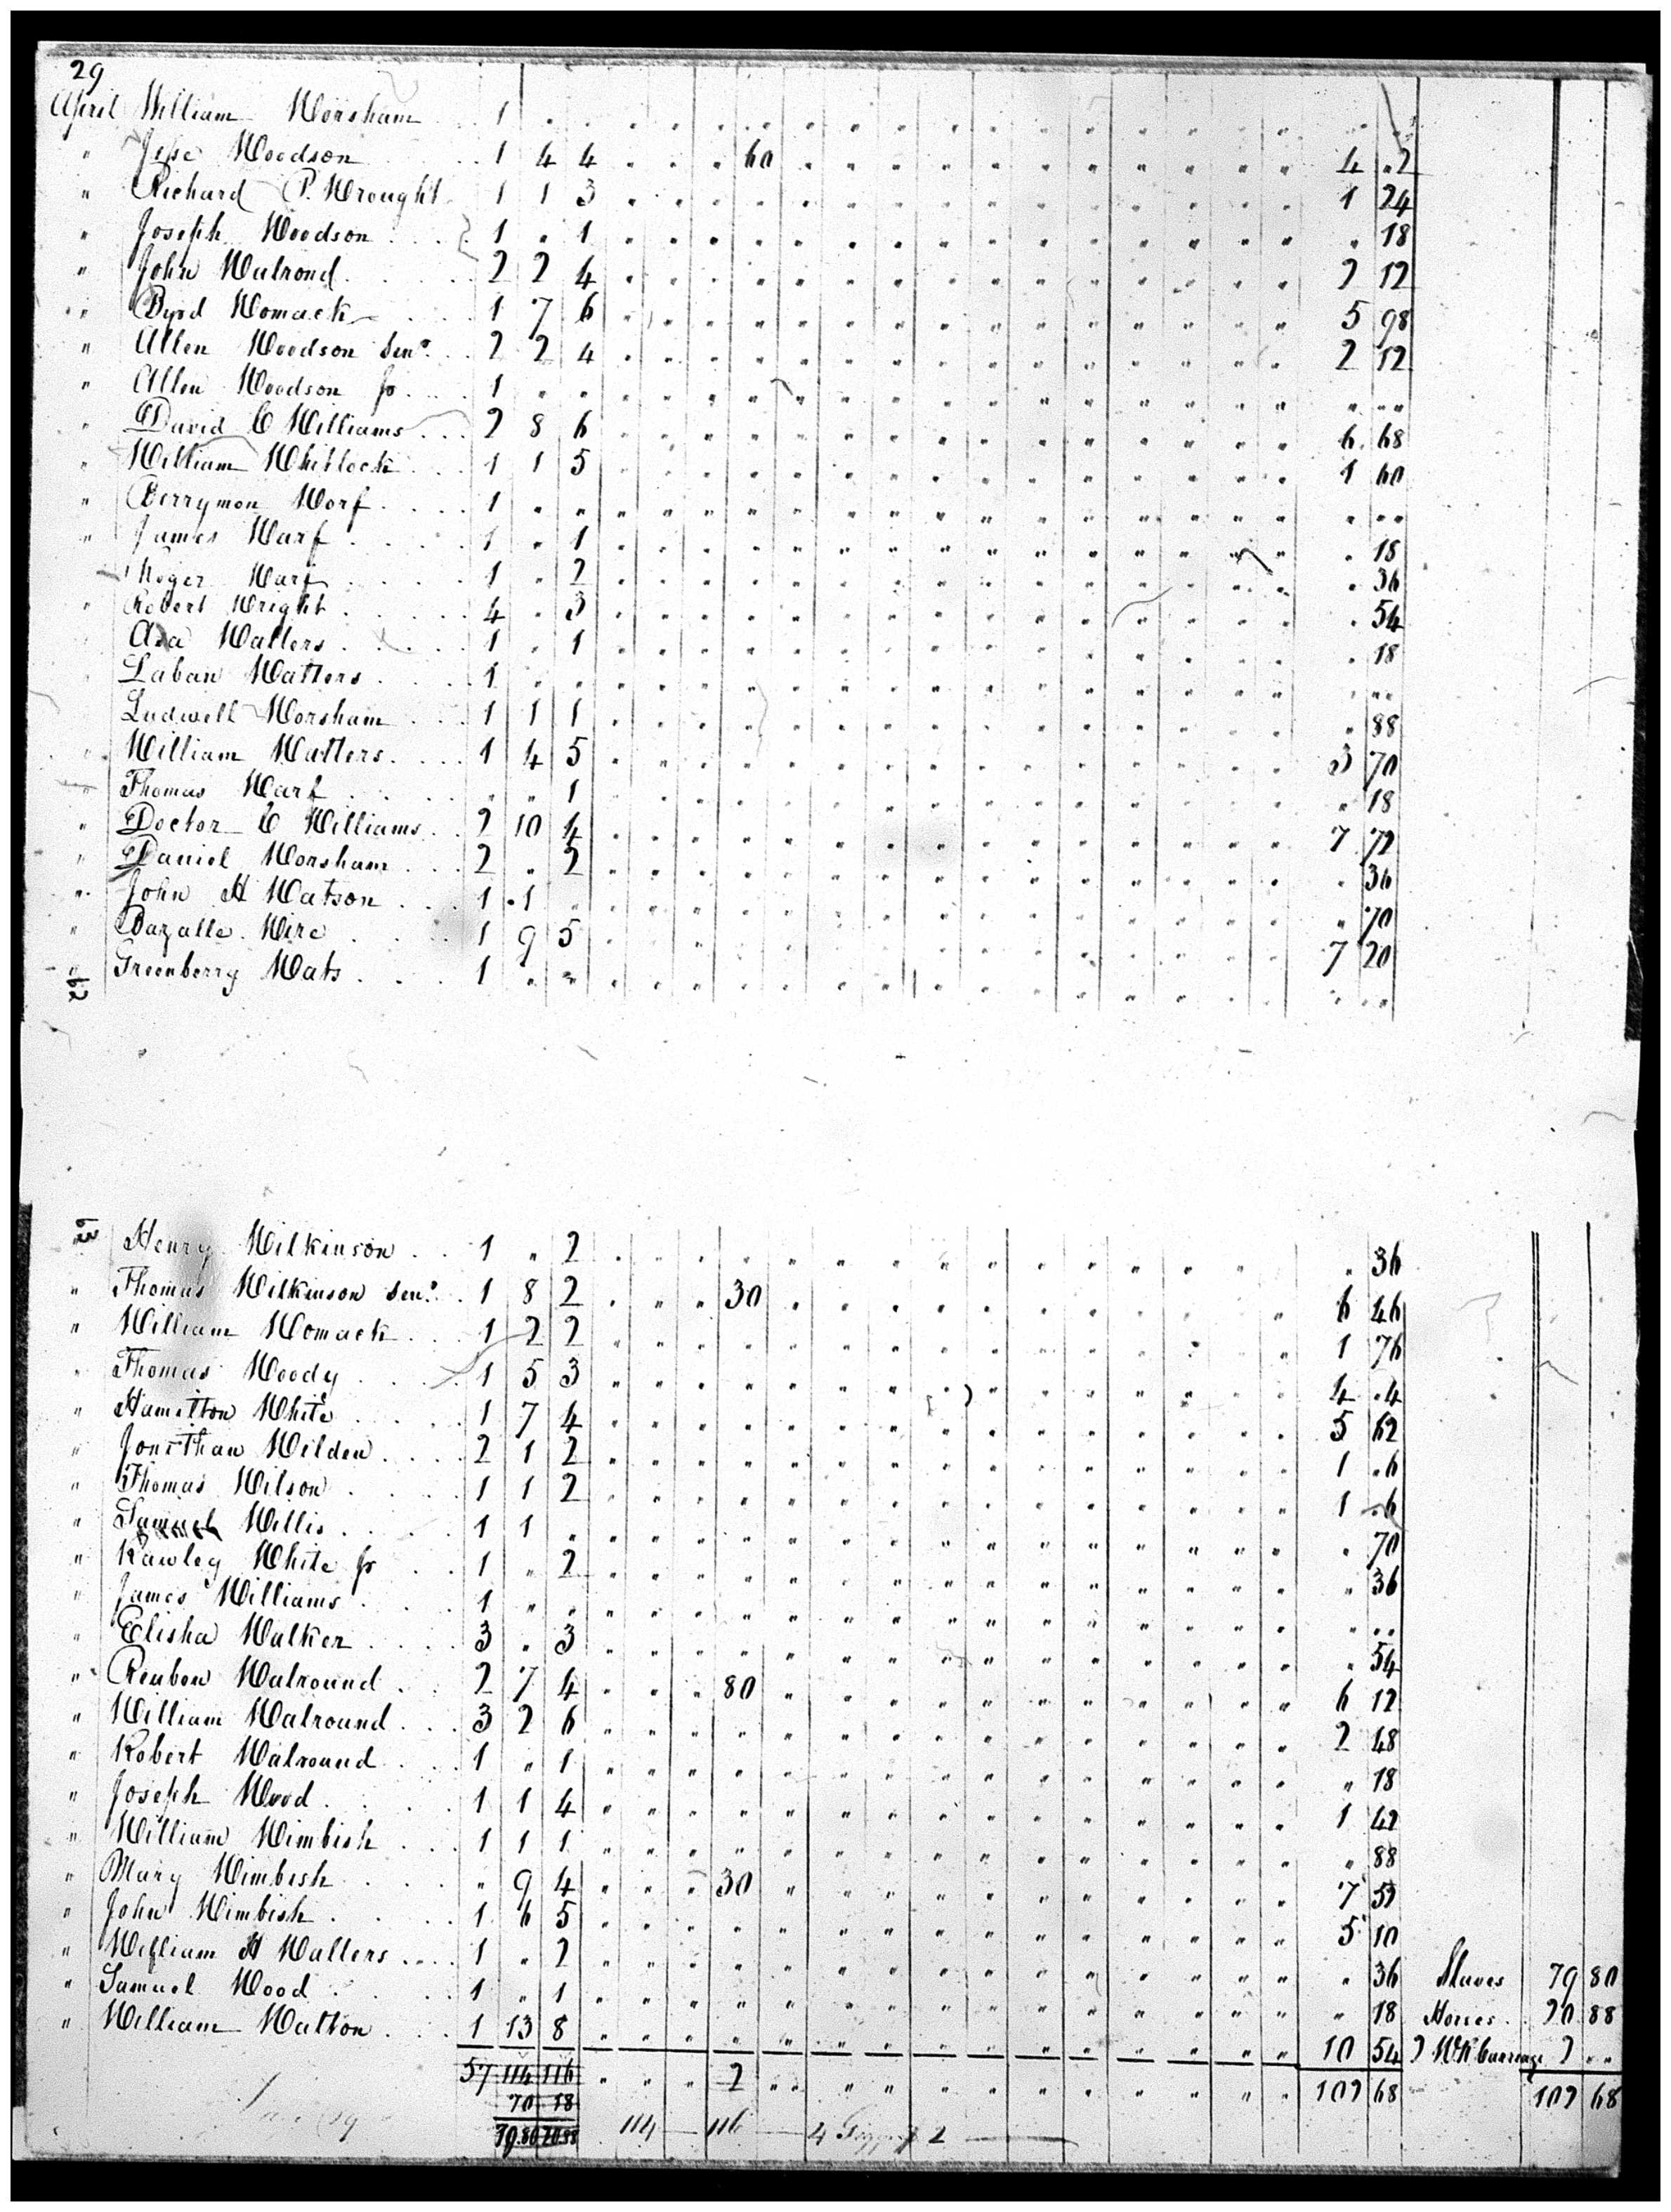 29
April William Worsham . . 1 " " " " " " " " " " " " " " " " "
" Jesse Woodson . . 1 4 4 " " " 60 " " " " " " " " " " " 4 " 2
" Richard P. Wrought 1 1 3 " " " " " " " " " " " " " " " 1 24
" Joseph Woodson . . . . 1 " 1 " " " " " " " " " " " " " " " " 18
" John Walrond . . . . 2 2 4 " " " " " " " " " " " " " " " 2 12
" Byrd Womack . . . 1 7 6 " " " " " " " " " " " " " " " 5 98
" Allen Woodson Senr. . . 2 2 4 " " " " " " " " " " " " " " " 2 12
" Allen Woodson Jr . . . . 1 " " " " " " " " " " " " " " " " " " " "
" David C Williams . . . 2 8 6 " " " " " " " " " " " " " " " 6 68
" William Whitlock . . . 1 1 5 " " " " " " " " " " " " " " " 1 60
" Berrymon Worf . . . . 1 " " " " " " " " " " " " " " " " " " " "
" James Warf . . . . 1 " 1 " " " " " " " " " " " " " " " " 18
Roger Warf . . . . 1 " 2 " " " " " " " " " " " " " " " " 36
" Robert Wright . . . . 4 " 3 " " " " " " " " " " " " " " " " 54
Asa Watters . . . . 1 " 1 " " " " " " " " " " " " " " " " 18
Laban Watters . . . . 1 " " " " " " " " " " " " " " " " " " " "
Ludwell Worsham . . . 1 1 1 " " " " " " " " " " " " " " " " 88
" William Watters . . . . 1 4 5 " " " " " " " " " " " " " " " 3 70
" Thomas Warf . . . . " " 1 " " " " " " " " " " " " " " " " 18
" Doctor C Williams . . 2 10 4 " " " " " " " " " " " " " " " 7 72
" Daniel Worsham . . . 2 " 2 " " " " " " " " " " " " " " " " 36
" John H Watson . . . 1 1 " " " " " " " " " " " " " " " " " 70
" Bazalle Wire . . . 1 9 5 " " " " " " " " " " " " " " " 7 20
" Greenberry Wats . . . 1 " " " " " " " " " " " " " " " " " " " "
62
63 Henry Wilkinson . . 1 " 2 " " " " " " " " " " " " " " " " 36
" Thomas Wilkinson Senr. . 1 8 2 " " " 30 " " " " " " " " " " " 6 46
" William Womack . . . 1 2 2 " " " " " " " " " " " " " " " 1 76
" Thomas Woody . . . . 1 5 3 " " " " " " " " " " " " " " " 4 " 4
" Hamilton White . . . . 1 7 4 " " " " " " " " " " " " " " " 5 62
" Jonathan Wilden . . . . 2 1 2 " " " " " " " " " " " " " " " 1 " 6
" Thomas Wilson . . . . 1 1 2 " " " " " " " " " " " " " " " 1 " 6
" Samuel Willis . . . . 1 1 " " " " " " " " " " " " " " " " " 70
" Rawley White Jr . . 1 " 2 " " " " " " " " " " " " " " " " 36
" James Williams . . . 1 " " " " " " " " " " " " " " " " " " " "
" Elisha Walker . . . . 3 " 3 " " " " " " " " " " " " " " " " 54
" Reuben Walround . . 2 7 4 " " " 80 " " " " " " " " " " " 6 12
" William Walround . . . 3 2 6 " " " " " " " " " " " " " " " 2 48
" Robert Walround . . . 1 " 1 " " " " " " " " " " " " " " " " 18
" Joseph Wood . . . . 1 1 4 " " " " " " " " " " " " " " " 1 42
" William Wimbish . . . 1 1 1 " " " " " " " " " " " " " " " " 88
" Mary Wimbish . . . . " 9 4 " " " 30 " " " " " " " " " " " 7 52
" John Wimbish . . . . 1 6 5 " " " " " " " " " " " " " " " 5 10
" William H Watters . . . . 1 " 2 " " " " " " " " " " " " " " " " 36 Slaves 79 80
" Samuel Wood . . . . 1 " 1 " " " " " " " " " " " " " " " " 18 Horses . 20 88
" William Watton . . . . 1 13 8 " " " " " " " " " " " " " " " 10 54 2 W R Carriage 2 " "
57 114 116 " " " 2 " " " " " " " " " " " 102 68 102 68
70 18
79.80 20.88 114 — 116 — 4 Giggs $ 2 —